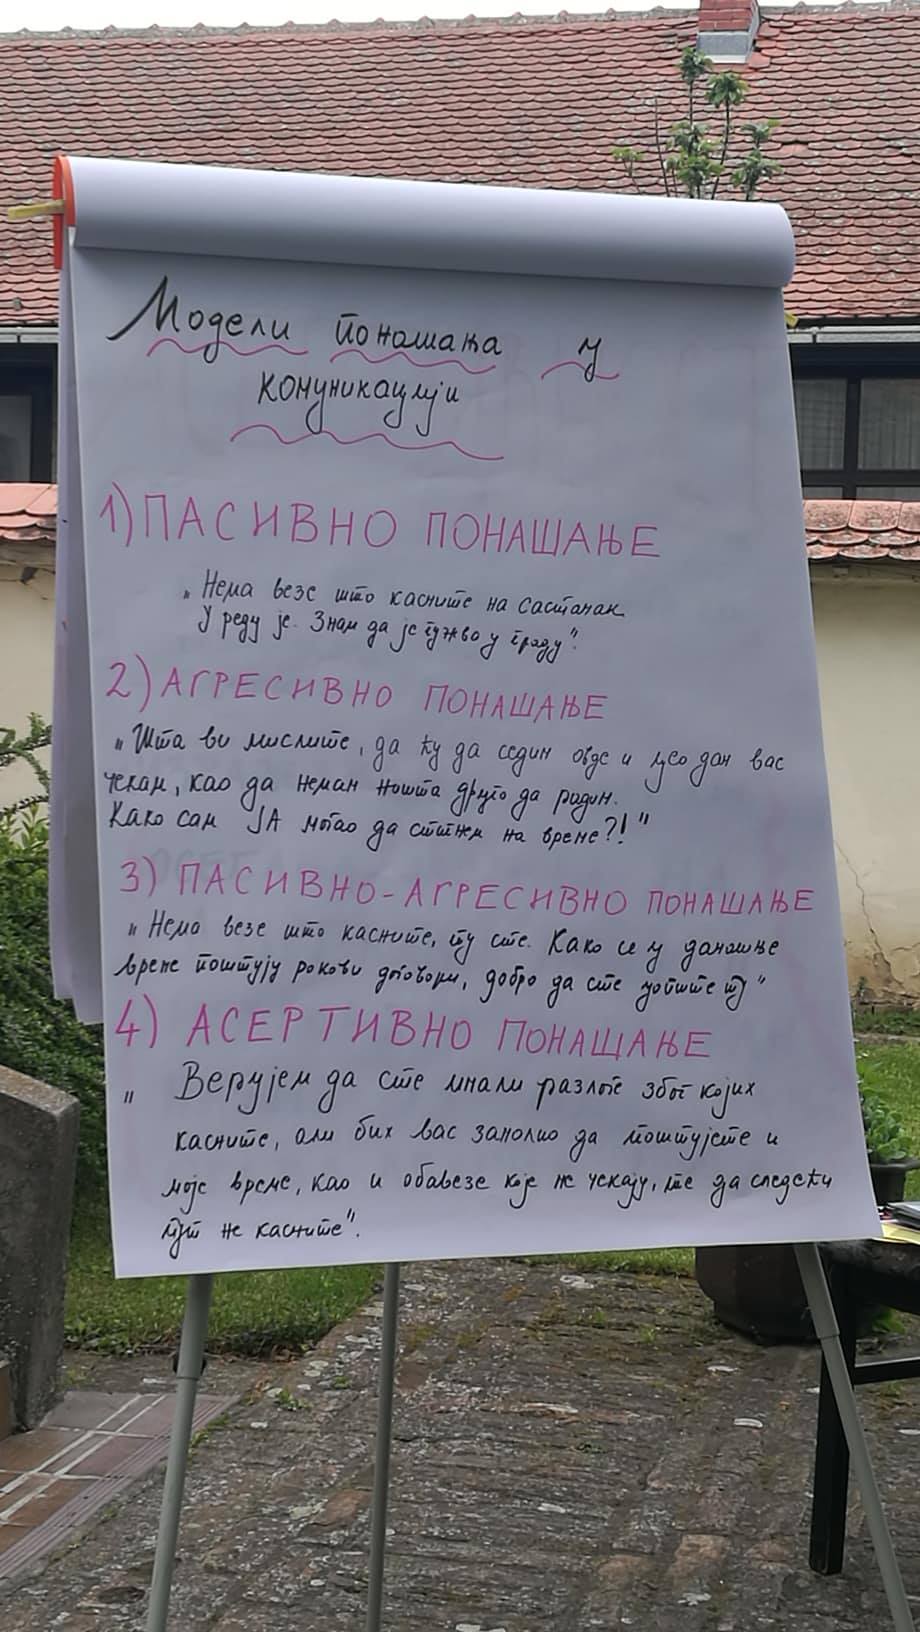 Модели понашања у
комуникацији
1) ПАСИВНО ПОНАШАЊЕ
„Нема везе што касните на састанак
У реду је. Знам да је гужва у граду“.
2) АГРЕСИВНО ПОНАШАЊЕ
„Шта ви мислите, да ћу да седим овде и цео дан вас
чекам, као да немам ништа друго да радим.
Како сам ЈА могао да стигнем на време?!“
3) ПАСИВНО-АГРЕСИВНО ПОНАШАЊЕ
„Нема везе што касните, ту сте. Како се у данашње
време поштују рокови договори, добро да сте уопште ту“
4) АСЕРТИВНО ПОНАШАЊЕ
„ Верујем да сте имали разлоге због којих
касните, али бих вас замолио да поштујете и
моје време, као и обавезе које не чекају, те да следећи
пут не касните“.